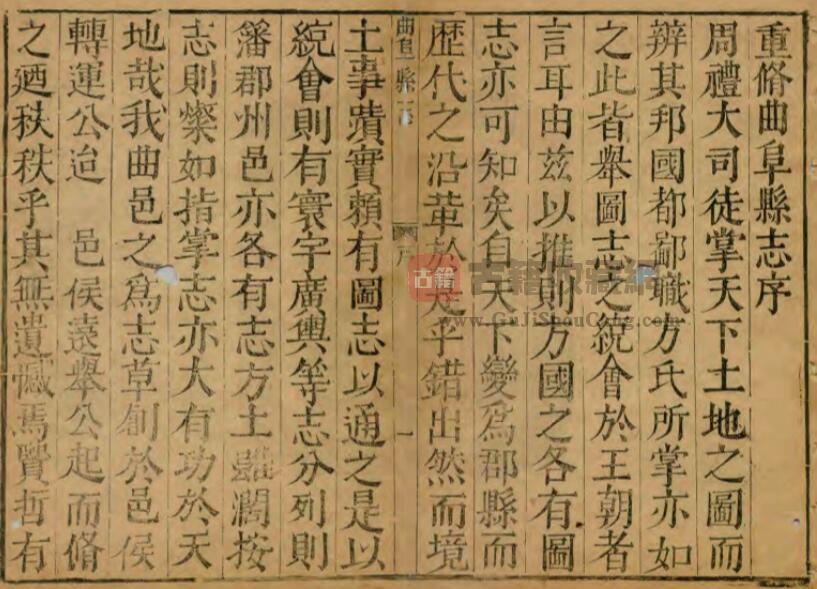 重脩曲阜縣志序
周禮大司徒掌天下土地之圖而
辨其邦國都鄙職方氏所掌亦如
之此皆舉圖志之統會於王朝者
言耳由茲以推則方國之各有圖
志亦可知矣自天下變爲郡縣而
歷代之沿革於是乎錯出然而境
曲阜縣志
序
一
土事蹟實賴有圖志以通之是以
統會則有寰宇廣輿等志分列則
藩郡州邑亦各有志方土雖濶按
志則燦如指掌志亦大有功於天
地哉我曲邑之爲志草創於邑侯
轉運公迨 邑侯遠舉公起而脩
之廼秩秩乎其無遺憾焉賢哲有
古籍
古籍收藏網
www.GuJiShouCang.com